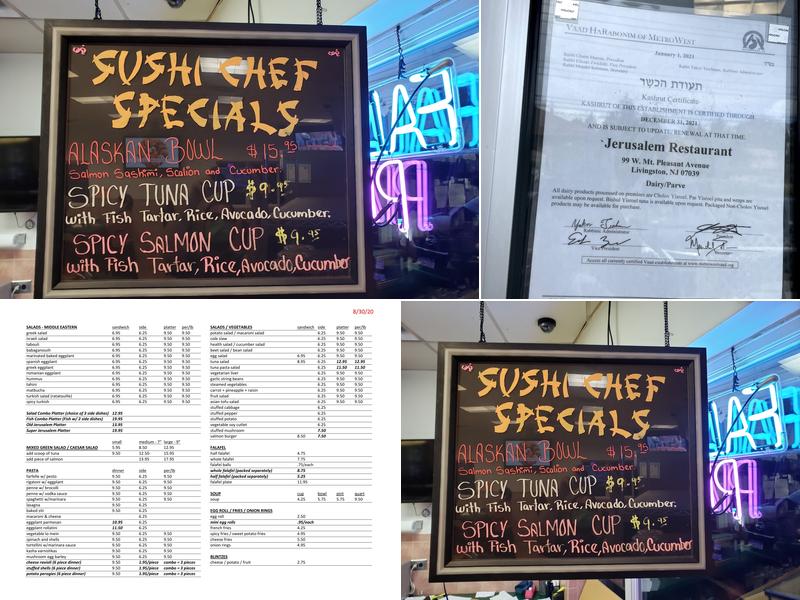 SUSHI CHEF
SPECIALS
ALASKAN BOWL $15.95
Salmon Sashimi, Scalion and Cucumber.
SPICY TUNA CUP $9.95
with Fish Tartar, Rice, Avocado, Cucumber.
SPICY SALMON CUP $9.95
with Fish Tartar, Rice, Avocado, Cucumber
VAAD HARABONIM OF METROWEST
January 1, 2021
תעודת הכשר
Kashrut Certificate
KASHRUT OF THIS ESTABLISHMENT IS CERTIFIED THROUGH
DECEMBER 31, 2021
AND IS SUBJECT TO UPDATE/RENEWAL AT THAT TIME.
Jerusalem Restaurant
99 W. Mt. Pleasant Avenue
Livingston, NJ 07039
Dairy/Parve
All dairy products processed on premises are Cholov Yisroel. Pas Yisroel pita and wraps are
available upon request. Bishul Yisroel tuna is available upon request. Packaged Non-Cholov Yisroel
products may be available for purchase.
Rabbinic Administrator
Vice President
8/30/20
SALADS - MIDDLE EASTERN sandwich side platter per/lb
greek salad 6.95 6.25 9.50 9.50
israeli salad 6.95 6.25 9.50 9.50
tabouli 6.95 6.25 9.50 9.50
babaganoush 6.95 6.25 9.50 9.50
marinated baked eggplant 6.95 6.25 9.50 9.50
spanish eggplant 6.95 6.25 9.50 9.50
greek eggplant 6.95 6.25 9.50 9.50
romanian eggplant 6.95 6.25 9.50 9.50
hummus 6.95 6.25 9.50 9.50
tahini 6.95 6.25 9.50 9.50
matbucha 6.95 6.25 9.50 9.50
turkish salad (ratatouille) 6.95 6.25 9.50 9.50
spicy turkish 6.95 6.25 9.50 9.50
Salad Combo Platter (choice of 3 side dishes) 12.95
Fish Combo Platter (Fish w/ 2 side dishes) 19.95
Old Jerusalem Platter 13.95
Super Jerusalem Platter 19.95
small medium - 7" large - 9"
MIXED GREEN SALAD / CAESAR SALAD 5.95 8.50 12.95
add scoop of tuna 9.50 12.50 15.95
add piece of salmon 13.95 17.95
PASTA dinner side per/lb
farfelle w/ pesto 9.50 6.25 9.50
rigatoni w/ eggplant 9.50 6.25 9.50
penne w/ broccoli 9.50 6.25 9.50
penne w/ vodka sauce 9.50 6.25 9.50
spaghetti w/marinara 9.50 6.25 9.50
lasagna 9.50 6.25
baked ziti 9.50 6.25
macaroni & cheese 6.25
eggplant parmesan 10.95 6.25
eggplant rollatini 11.50 6.25
vegetable lo mein 9.50 6.25 9.50
spinach and shells 9.50 6.25 9.50
tortellini w/marinara sauce 9.50 6.25 9.50
kasha varnishkas 9.50 6.25 9.50
mushroom egg barley 9.50 6.25 9.50
cheese ravioli (6 piece dinner) 9.50 1.95/piece combo = 3 pieces
stuffed shells (6 piece dinner) 9.50 1.95/piece combo = 3 pieces
potato perogies (6 piece dinner) 9.50 1.95/piece combo = 3 pieces
SALADS / VEGETABLES sandwich side platter per/lb
potato salad / macaroni salad 6.25 9.50 9.50
cole slaw 6.25 9.50 9.50
health salad / cucumber salad 6.25 9.50 9.50
beet salad / bean salad 6.25 9.50 9.50
egg salad 6.95 6.25 9.50 9.50
tuna salad 8.95 6.25 12.95 12.95
tuna pasta salad 6.25 11.50 11.50
vegetarian liver 6.25 9.50 9.50
garlic string beans 6.25 9.50 9.50
steamed vegetables 6.25 9.50 9.50
carrot + pineapple + raisin 6.25 9.50 9.50
fruit salad 6.25 9.50 9.50
asian tofu salad 6.25 9.50 9.50
stuffed cabbage 6.25
stuffed pepper 6.25
stuffed potato 6.25
vegetable soy cutlet 6.25
stuffed mushroom 7.50
salmon burger 8.50 7.50
FALAFEL
half falafel 4.75
whole falafel 7.75
falafel balls .75/each
whole falafel (packed separately) 8.75
half falafel (packed separately) 5.25
falafel plate 11.95
SOUP cup bowl pint quart
soup 4.25 5.75 5.75 9.50
EGG ROLL / FRIES / ONION RINGS
egg roll 2.50
mini egg rolls .95/each
french fries 4.25
spicy fries / sweet potato fries 4.95
cheese fries 5.50
onion rings 4.95
BLINTZES
cheese / potato / fruit 2.75
SUSHI CHEF
SPECIALS
ALASKAN BOWL $15.95
Salmon Sashimi, Scalion and Cucumber.
SPICY TUNA CUP $9.95
with Fish Tartar, Rice, Avocado, Cucumber.
SPICY SALMON CUP $9.95
with Fish Tartar, Rice, Avocado, Cucumber